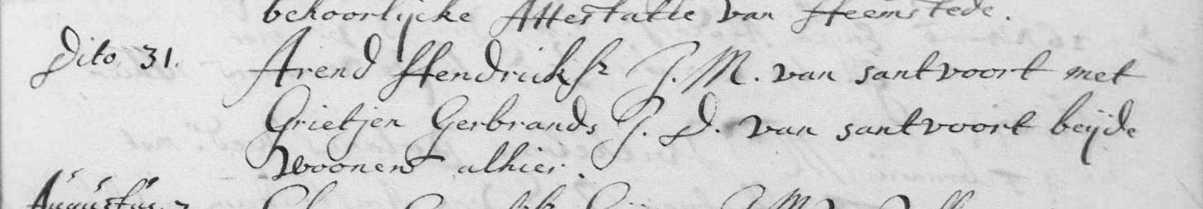 behoorlijcke Attestatie van Heemstede.
Dito 31. Arend Hendricksz J. M. van santvoort met
Grietjen Gerbrands J. D. van santvoort beijde
woonend alhier.
Augustus